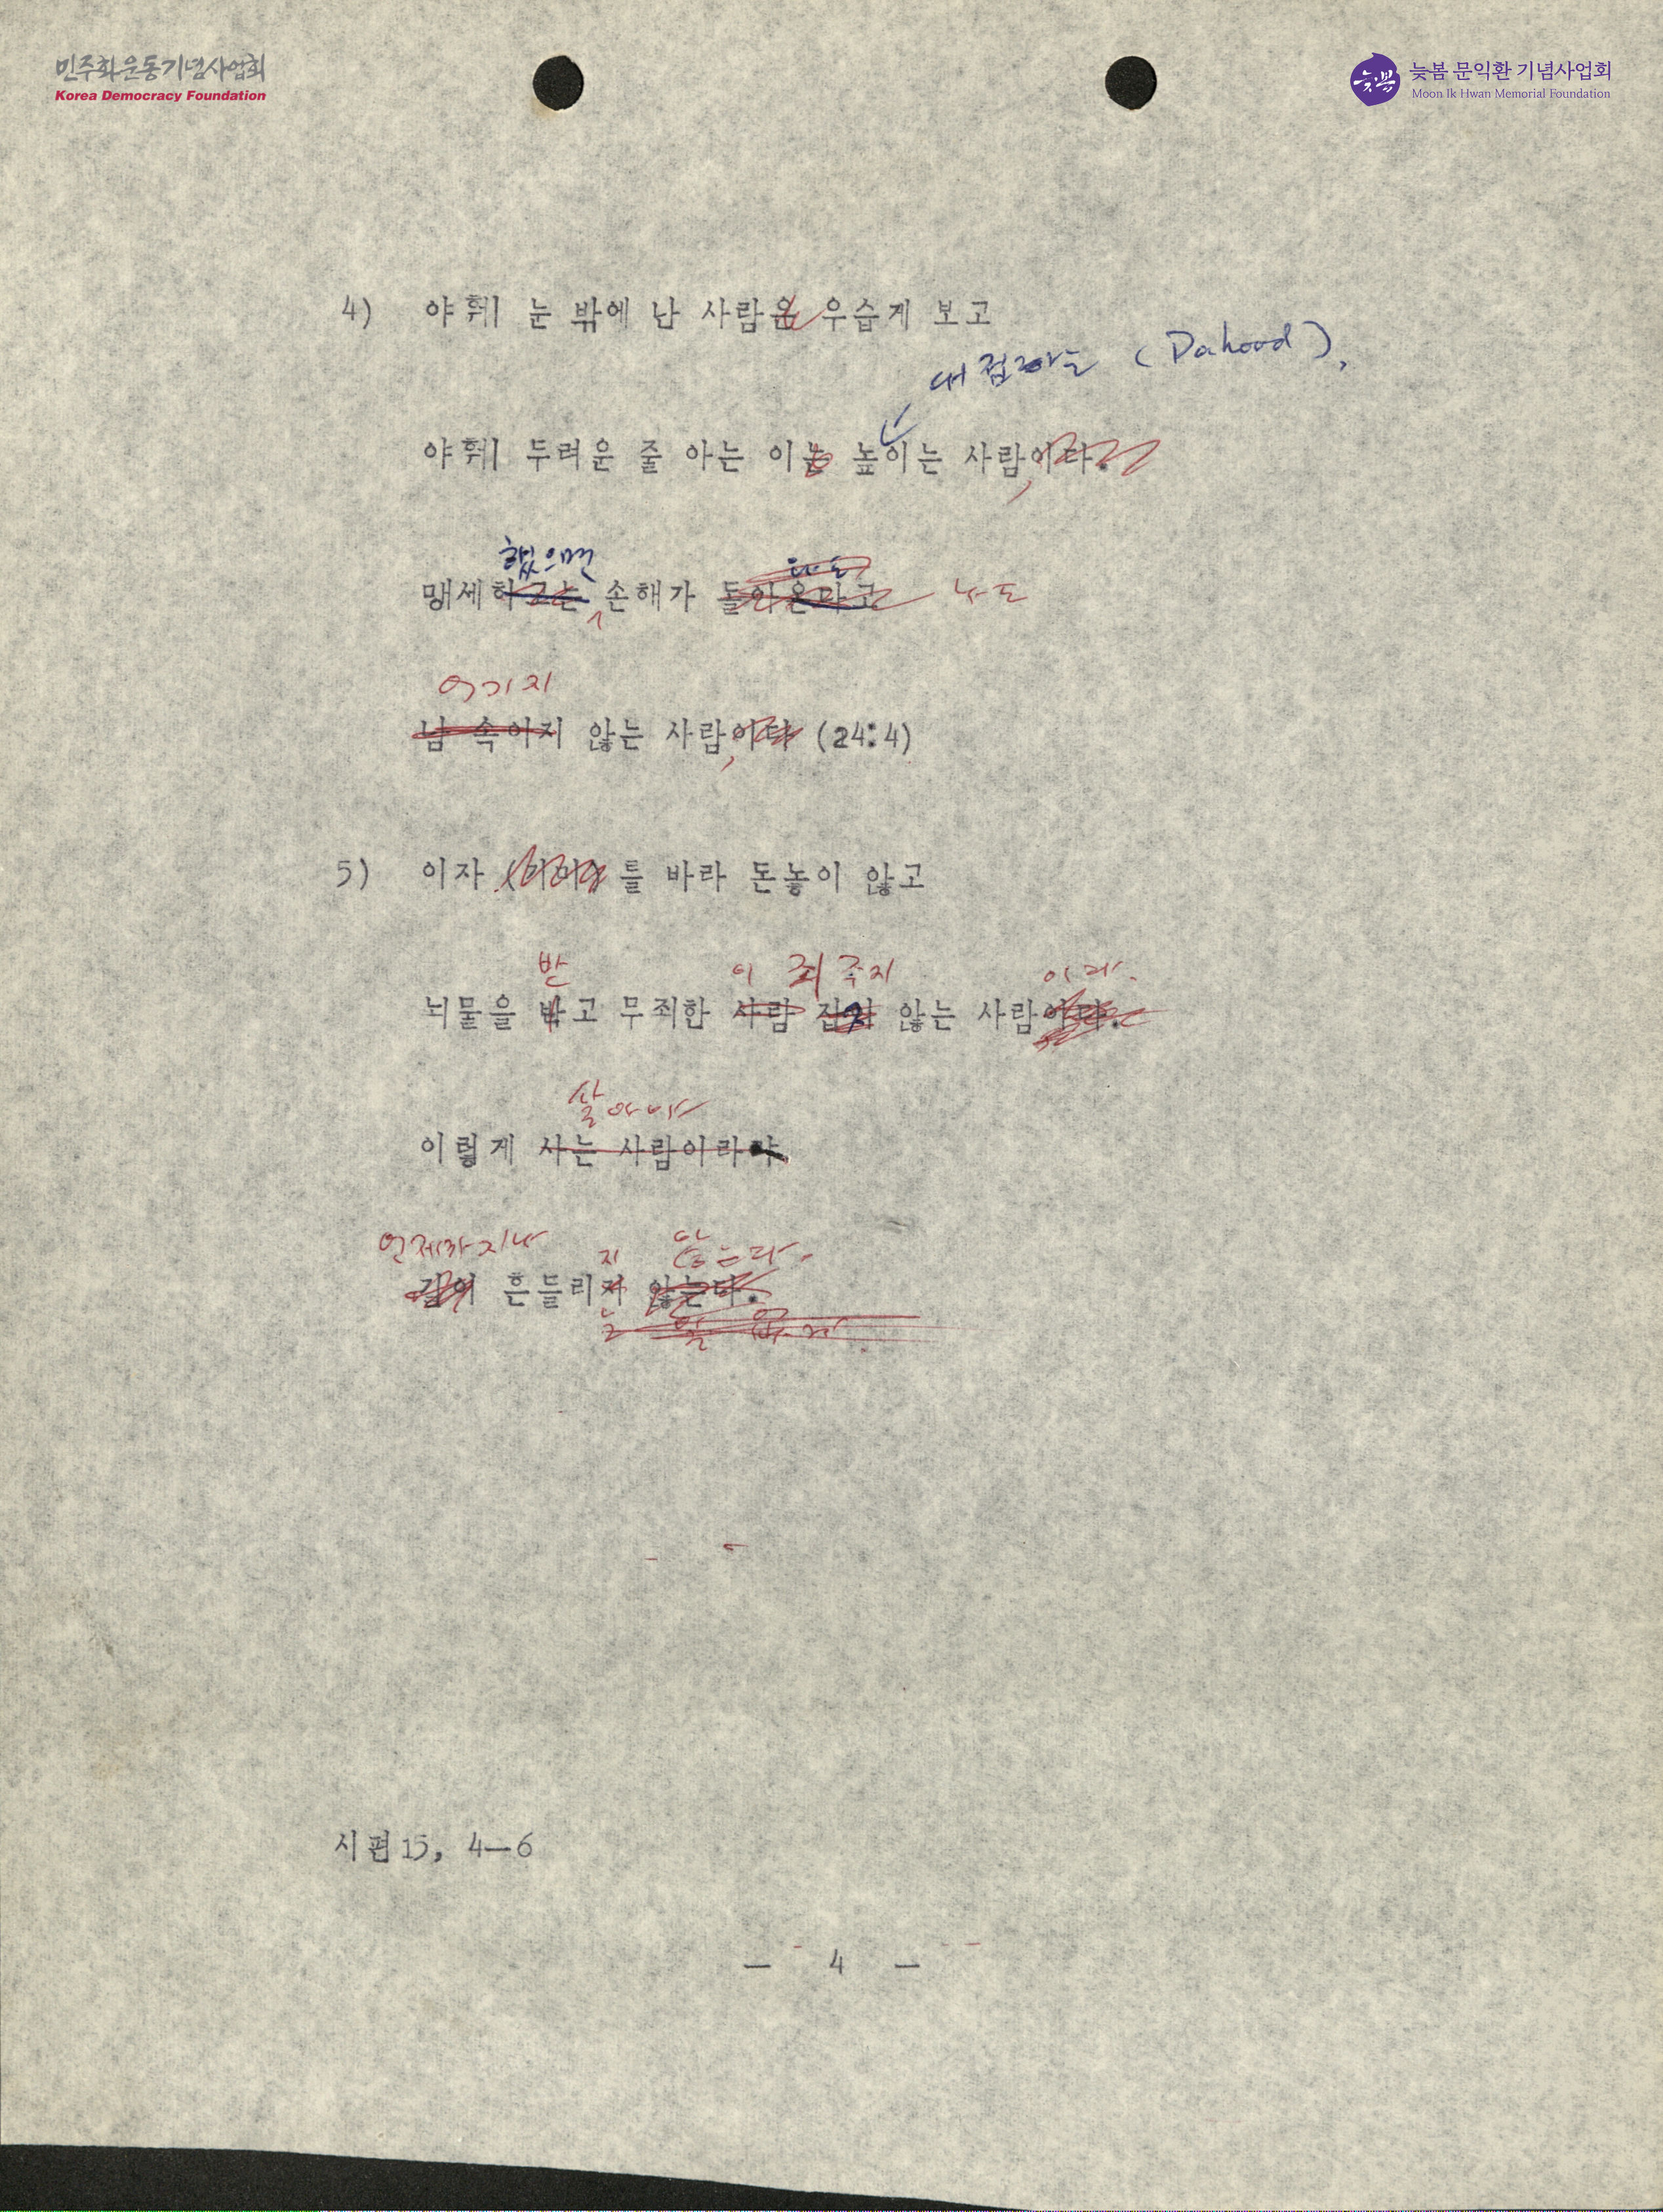 민주화운동기념사업회
Korea Democracy Foundation
늦봄 문익환 기념사업회
Moon Ik Hwan Memorial Foundation
4) 야훼 눈 밖에 난 사람은 우습게 보고
대접하는 (Dahood),
야훼 두려운 줄 아는 이는 높이는 사람이다.
했으면
맹세하고는 손해가 돌아온다고 나도
어기지
남 속이지 않는 사람이다 (24:4)
5) 이자 를 바라 돈놓이 않고
받 이 죄 주지 이라.
뇌물을 고 무죄한 사람 잡지 않는 사람이다.
살아야
이렇게 사는 사람이라야
언제까지나 지 않는다.
길이 흔들리지 않는다.
는 일 없다.
시편15, 4—6
— 4 —